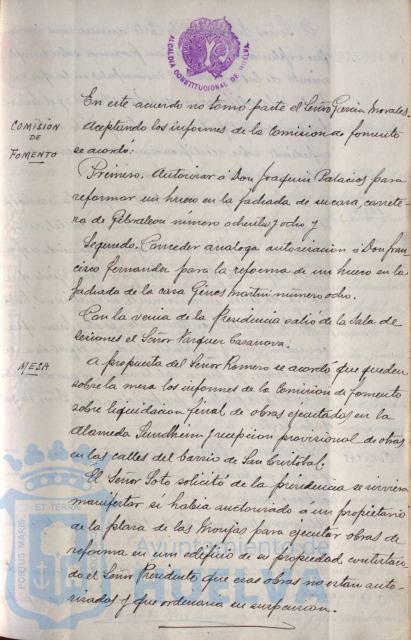 ALCALDIA CONSTITUCIONAL DE HUELVA
En este acuerdo no tomó parte el Señor Garcia Morales.
COMISIÓN
DE
FOMENTO
Aceptando los informes de la Comision de fomento
se acordó:
Primero. Autorizar a Don Joaquin Palacios para
reformar un hueco en la fachada de su casa, carrete-
ra de Gibraleon número ochenta y ocho y
Segundo. Conceder analoga autorizacion a Don Fran
cisco Fernandez para la reforma de un hueco en la
fachada de la casa Ginés Martin número ocho.
Con la venia de la Presidencia salió de la Sala de
sesiones el Señor Vazquez Casanova.
MESA
A propuesta del Señor Romero se acordó que queden
sobre la mesa los informes de la Comision de fomento
sobre liquidacion final de obras ejecutadas en la
Alameda Sundheim y recepcion provisional de obras
en las calles del barrio de San Cristobal.
El Señor Soto solicitó de la presidencia se sirviera
manifestar si habia autorizado a un propietario
de la plaza de las Monjas para ejecutar obras de
reforma en un edificio de su propiedad, contestan-
do el Señor Presidente que esas obras no estan auto-
rizadas y que ordenaria su suspension.
PORTUS MARIS
ET TERRÆ
Ayuntamiento de
HUELVA